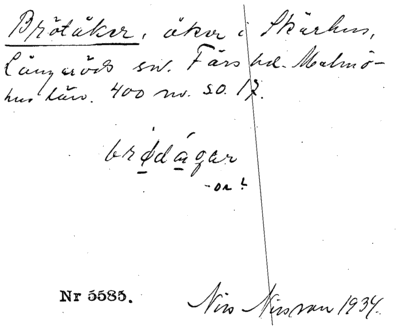 Brötåker, åker i Skärhus,
Långaröds sn. Färs hd. Malmö-
hus län. 400 m. SO. 17.
brödågar
-or?
Nr 5585.
Nils Nilsson 1934.